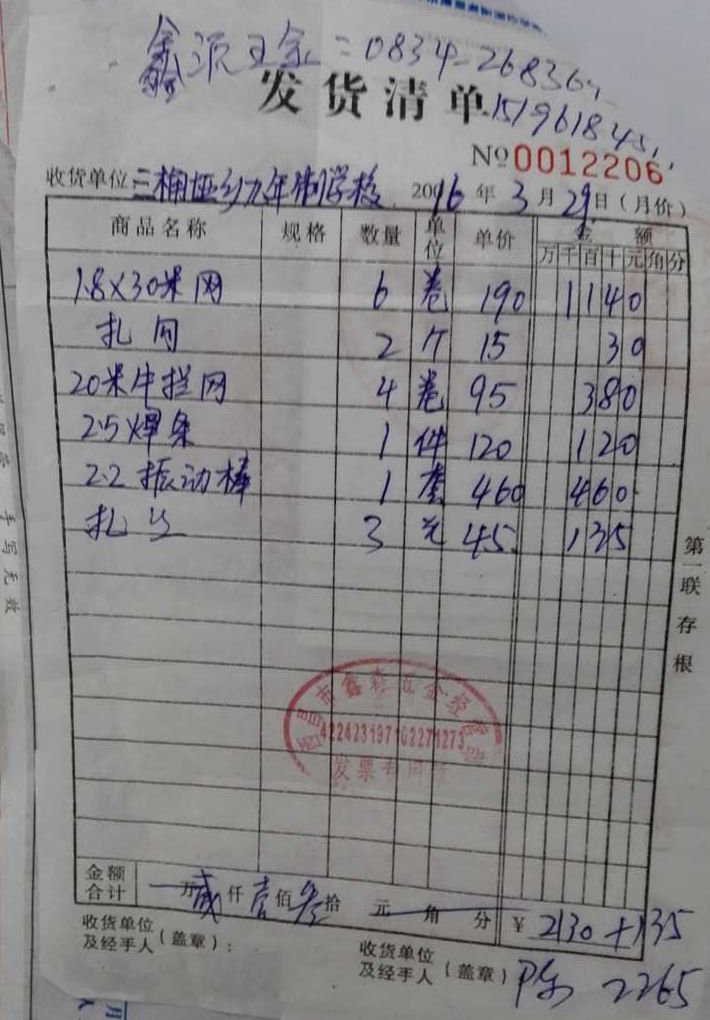 鑫派五金:0834-26836
发货清单
1519618451
№0012206
收货单位 三桷桠乡九年制学校 2016年3月29日(月价)
商品名称 规格 数量 单位 单价 金额
万千百十元角分
1.8×30米网 6 卷 190 1140
扎 2 个 15 30
20米牛拦网 4 卷 95 380
2.5焊条 1 件 120 120
2.2振动棒 1 套 460 460
扎丝 3 45 135
第一联存根
五金经营部
422423197102271273
发票专用章
金额合计 万贰仟壹佰叁拾元角分 ¥2130+135
收货单位及经手人(盖章):
收货单位及经手人(盖章)
2265
手写无效